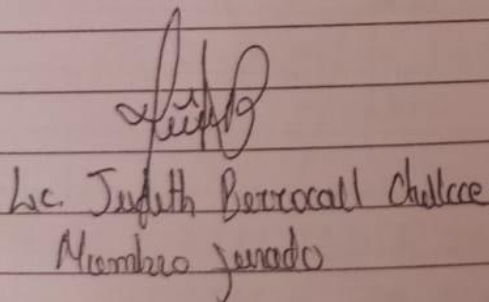 Lic. Judith Berrocall Chullcce
Miembro Jurado